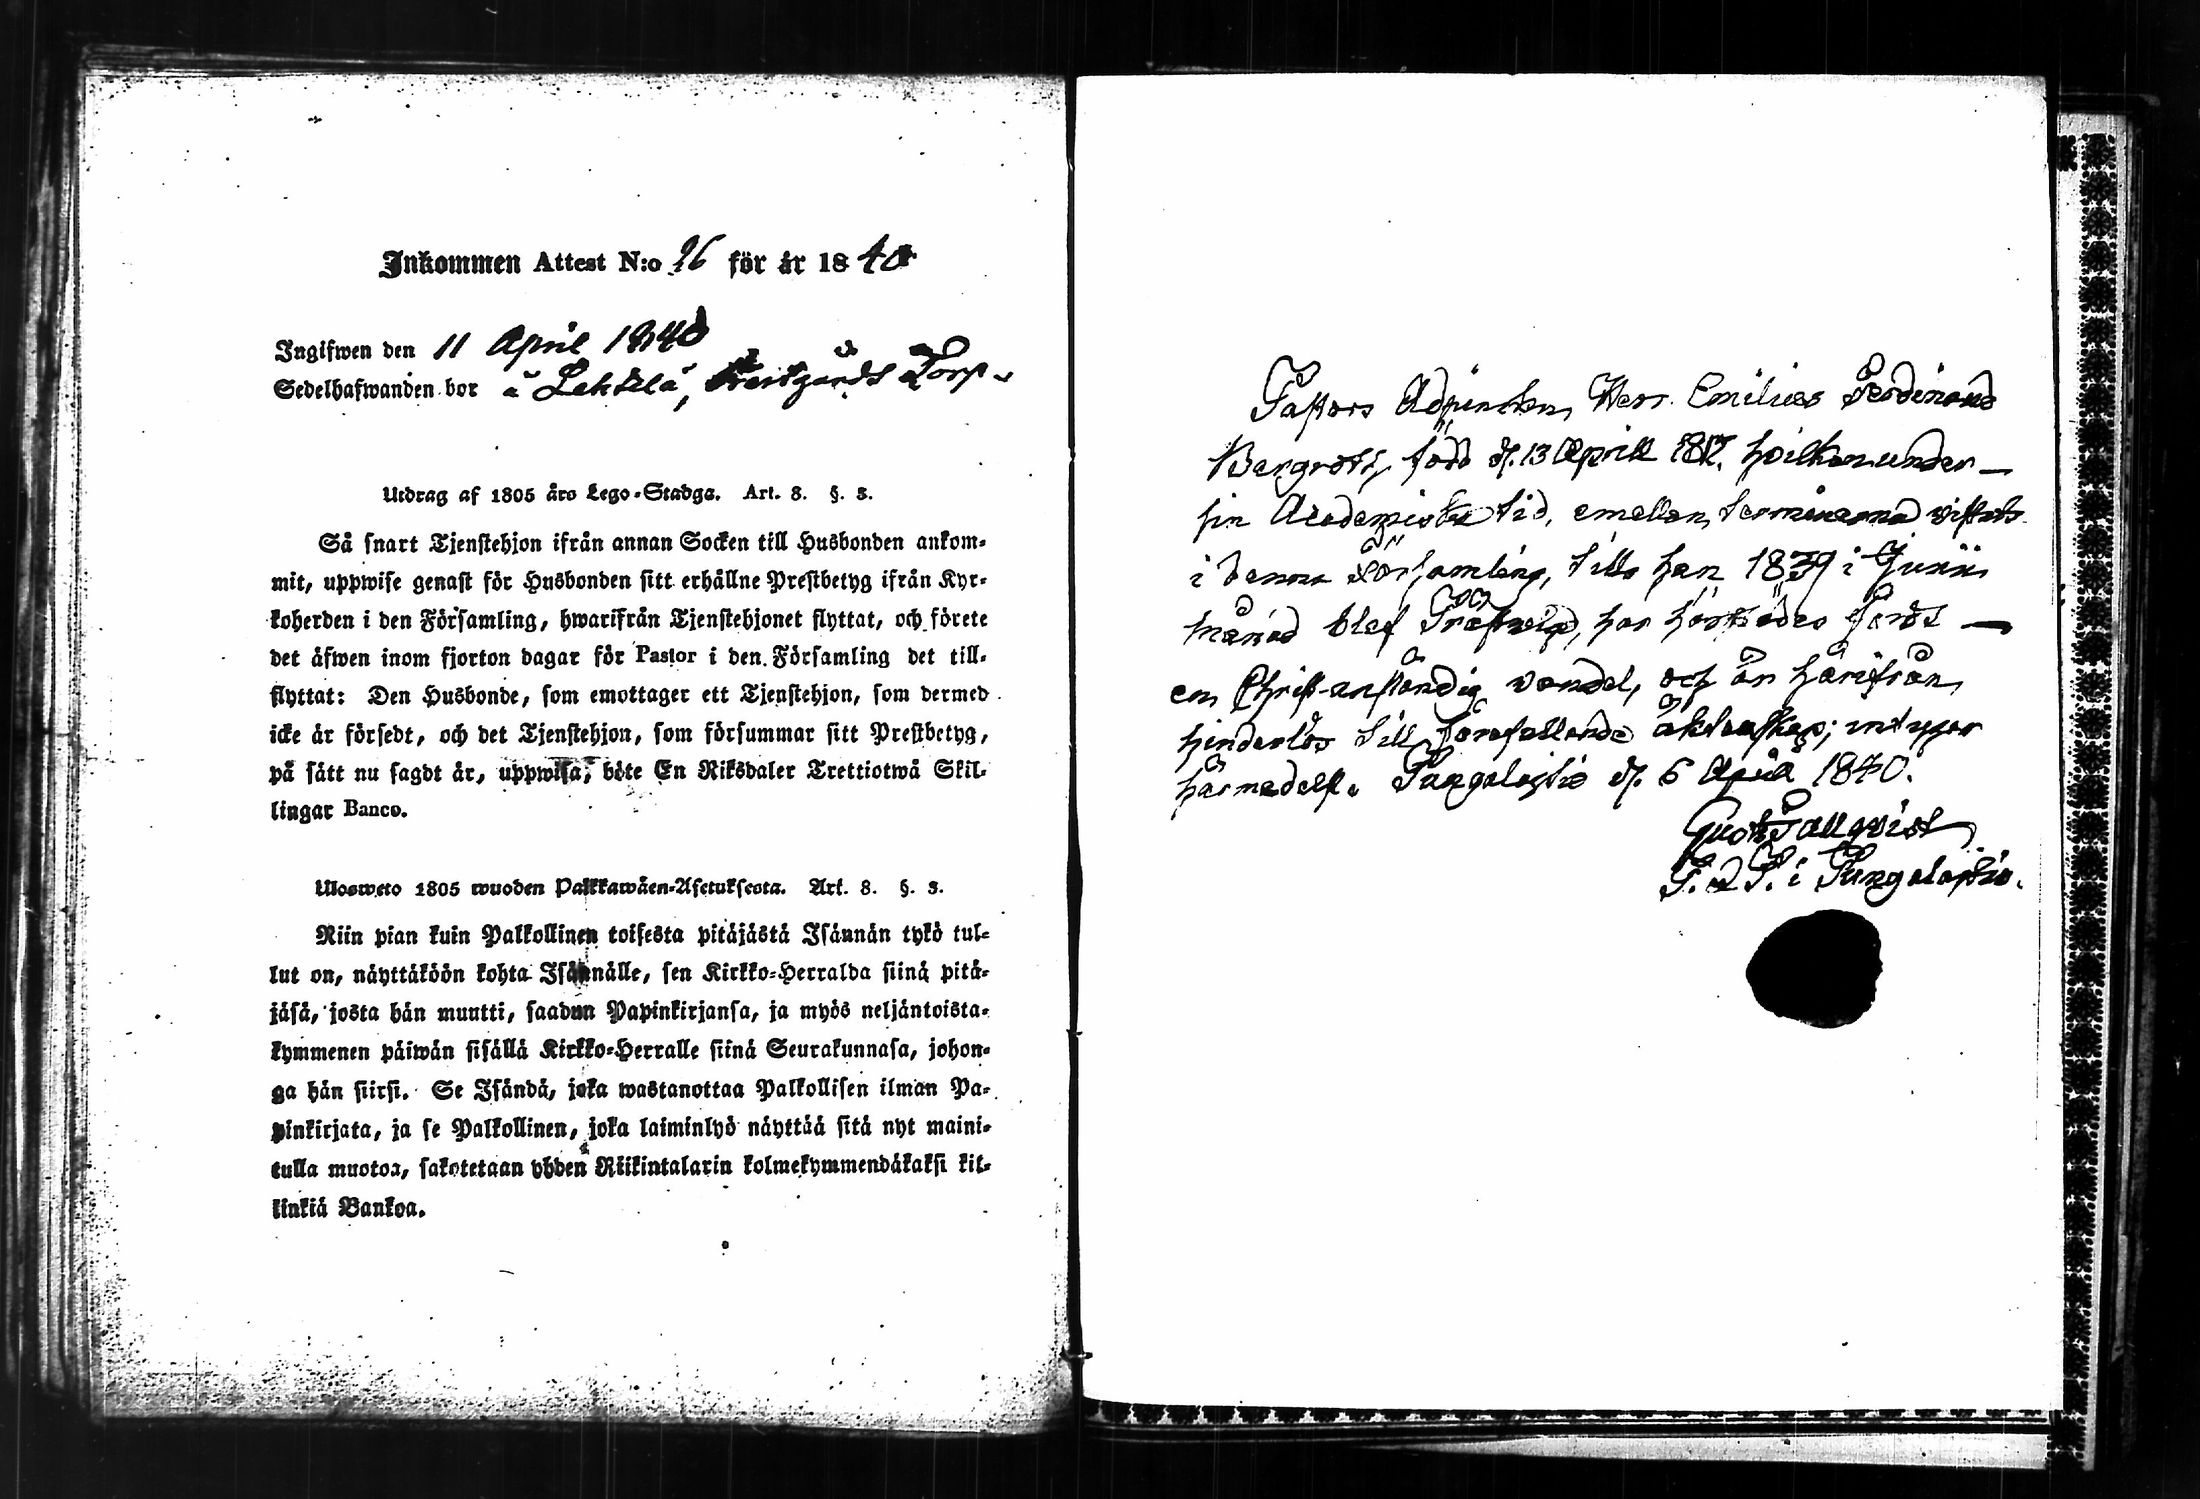 Inkommen Attest N:o 26 för år 1840
Ingifwen den 11 April 1840
Sedelhafwanden bor å Lahdelå, Torp
Utdrag af 1805 års Lego-Stadga. Art. 8. §. 3.
Så snart Tjenstehjon ifrån annan Socken till Husbonden ankom-
mit, uppwise genast för Husbonden sitt erhållne Prestbetyg ifrån Kyr-
koherden i den Församling, hwarifrån Tjenstehjonet flyttat, och förete
det äfwen inom fjorton dagar för Pastor i den Församling det till-
flyttat: Den Husbonde, som emottager ett Tjenstehjon, som dermed
icke är försedt, och det Tjenstehjon, som försummar sitt Prestbetyg,
på sätt nu sagdt är, uppwisa, böte En Riksdaler Trettiotwå Skil-
lingar Banco.
Ulosweto 1805 wuoden Palkkawäen-Asetuksesta. Art. 8. §. 3.
Niin pian kuin Palkollinen toisesta pitäjästä Isännän tykö tul-
lut on, näyttäköön kohta Isännälle, sen Kirkko-Herralda siinä pitä-
jäsä, josta hän muutti, saadun Papinkirjansa, ja myös neljäntoista-
kymmenen päiwän sisällä Kirkko-Herralle siinä Seurakunnasa, johon-
ga hän siirsi. Se Isändä, joka wastanottaa Palkollisen ilman Pa-
pinkirjata, ja se Palkollinen, joka laiminlyö näyttää sitä nyt maini-
tulla muotoa, sakotetaan yhden Riikintalarin kolmekymmendäkaksi kil-
linkiä Bankoa.
Pastors Adjuncten, Herr Emilius Ferdinand
Bergroth, född d. 13 April 1817, hvilken under
sin Academiska tid, emellan terminerna vistats
i denna Församling, tills han 1839 i Junii
månad blef Prästvigd, har härstädes fördt
en Christ-anständig vandel, och är härifrån
hinderlös till förefallande äktenskap; intygar
härmedelst. Pungalaitio d. 6 April 1840.
Gust. Tallqvist
P. i Pungalaitio.